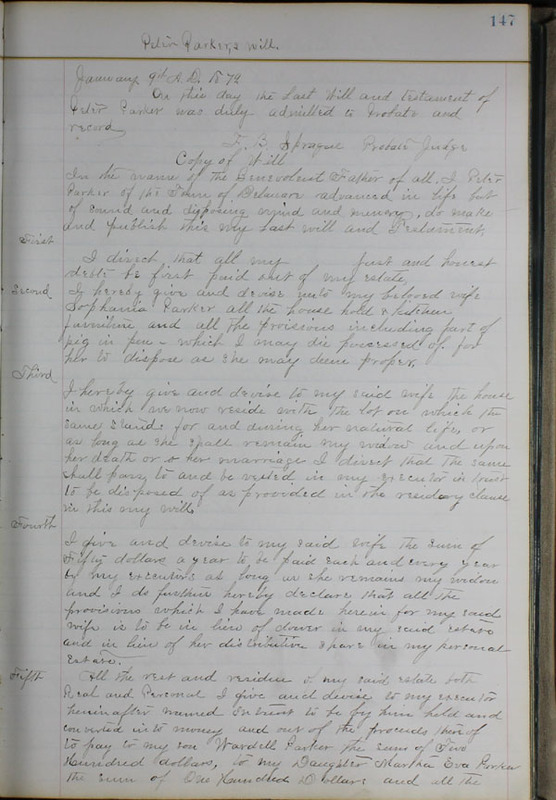 147
Peter Parker,s Will.
January 9th A.D. 1879
On this day the Last Will and testament of
Peter Parker was duly admitted to Probate and
record
F. B. Sprague Probate Judge
Copy of Will
In the name of the Benevolent Father of all, I Peter
Parker of the Town of Delaware advanced in life but
of sound and disposing mind and memory, do make
and publish this my Last will and Testament.
First
I direct that all my just and honest
debts be first paid out of my estate,
Second
I hereby give and devise unto my beloved wife
Sophania Parker all the house hold & kitchen
furniture and all the provisions including part of
pig in pen - which I may die possessed of. for
her to dispose as she may deem proper.
Third
I hereby give and devise to my said wife the house
in which we now reside with the lot on which the
same stands for and during her natural life, or
as long as she shall remain my widow and upon
her death or her marriage I direct that the same
shall pass to and be vested in my executor in trust
to be disposed of as provided in the residuary clause
in this my will.
Fourth
I give and devise to my said wife the sum of
Fifty dollars a year to be paid each and every year
by my executors as long as she remains my widow
and I do further hereby declare that all the
provisions which I have made herein for my said
wife is to be in lieu of dower in my said estate
and in lieu of her distributive share in my personal
Estate.
Fifth
All the rest and residue of my said estate both
Real and Personal I give and devise to my executor
hereinafter named in trust to be by him held and
converted into money and out of the proceeds thereof
to pay to my son Wardell Parker the sum of Two
Hundred dollars, to my Daughter Martha Eva Parker
the sum of One Hundred Dollars and all the